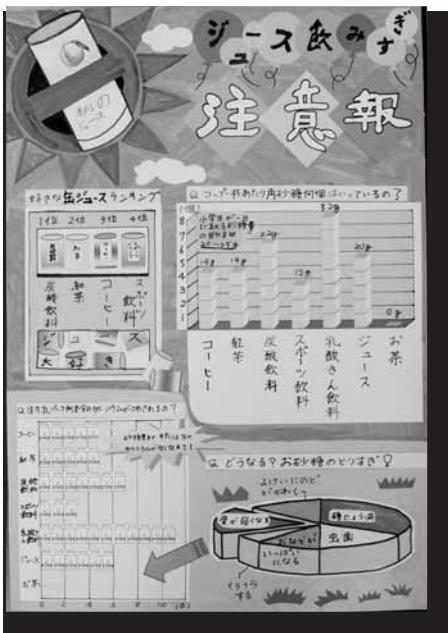 ジュース飲みすぎ
注意報
好きな缶ジュースランキング
1位 2位 3位 4位
炭酸飲料
紅茶
コーヒー
スポーツ飲料
ジュース
大好き
Q コップ一杯あたり角砂糖何個はいっているの?
(個)
8
7
6
5
4
3
2
1
小学生が一日
20~25g
14g
14g
22g
12g
32g
20g
0g
コーヒー
紅茶
炭酸飲料
スポーツ飲料
乳酸きん飲料
ジュース
お茶
コーヒー
紅茶
炭酸飲料
スポーツ飲料
ジュース
お茶
0 2 4 6 8 10
Q どうなる?お砂糖のとりすぎ
よけいにのど
がかわく
骨が弱くなる
糖にょう病
虫歯
おなかが
いっぱい
になる
イライラ
する